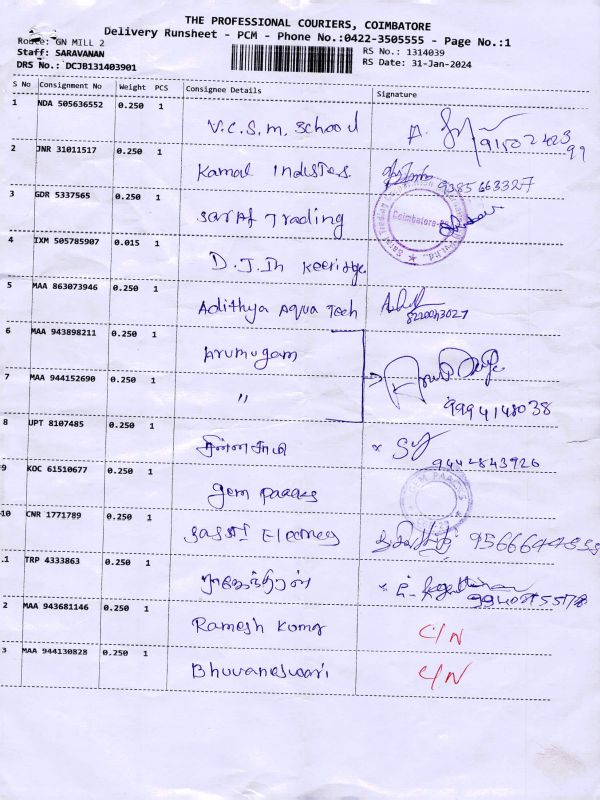 THE PROFESSIONAL COURIERS, COIMBATORE
Delivery Runsheet - PCM - Phone No.:0422-3505555 - Page No.:1
Route: GN MILL 2
RS No.: 1314039
Staff: SARAVANAN
RS Date: 31-Jan-2024
DRS No.: DCJB131403901
S No Consignment No Weight PCS Consignee Details Signature
1 NDA 505636552 0.250 1
V.C.S.M. School
2 JNR 31011517 0.250 1
Kamal Industres 9385663327
3 GDR 5337565 0.250 1
Saraf Trading Coimbatore
4 IXM 505785907 0.015 1
D.J.Jh
5 MAA 863073946 0.250 1
Adithya Aqua Tech 8220043027
6 MAA 943898211 0.250 1
Arumugam
7 MAA 944152690 0.250 1
" 9994148038
8 UPT 8107485 0.250 1
சின்னசாமி 9442843926
9 KOC 61510677 0.250 1
Gem Paacks GEM PAACKS
10 CNR 1771789 0.250 1
.1 TRP 4333863 0.250 1
2 MAA 943681146 0.250 1
Ramesh Kumar C/N
3 MAA 944130828 0.250 1
Bhuvaneswari C/N